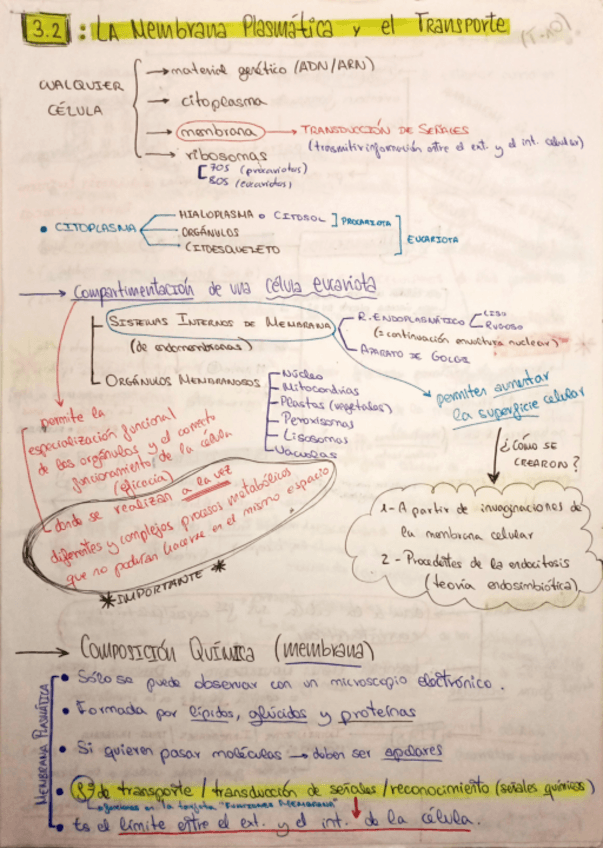 3.2 : LA Membrana Plasmática y el Transporte
CUALQUIER CÉLULA
→ material genético (ADN/ARN)
→ citoplasma
→ membrana → TRANSDUCCIÓN DE SEÑALES
(transmitir información entre el ext. y el int. celular)
→ ribosomas
70S (procariotas)
80S (eucariotas)
• CITOPLASMA
HIALOPLASMA o CITOSOL ] PROCARIOTA
ORGÁNULOS
CITOESQUELETO
EUCARIOTA
→ Compartimentación de una célula eucariota
SISTEMAS INTERNOS DE MEMBRANA
(de endomembranas)
R. ENDOPLASMÁTICO
LISO
RUGOSO
(= continuación envoltura nuclear)
APARATO DE GOLGI
ORGÁNULOS MEMBRANOSOS
Núcleo
Mitocondrias
Plastos (vegetales)
Peroxisomas
Lisosomas
Vacuolas
permiten aumentar
la superficie celular
¿CÓMO SE
CREARON?
1- A partir de invaginaciones de
la membrana celular
2 - Procedentes de la endocitosis
(teoría endosimbiótica)
permite la
especialización funcional
de los orgánulos y el correcto
funcionamiento de la célula
(eficacia)
donde se realizan a la vez
diferentes y complejos procesos metabólicos
que no podrían hacerse en el mismo espacio
* IMPORTANTE *
→ COMPOSICIÓN QUÍMICA (membrana)
MEMBRANA PLASMÁTICA
• Sólo se puede observar con un microscopio electrónico.
• Formada por lípidos, glúcidos y proteínas
• Si quieren pasar moléculas → deben ser apolares
• de transporte / transducción de señales / reconocimiento (señales químicas)
funciones en la tarjeta "FUNCIONES MEMBRANA"
• Es el límite entre el ext. y el int. de la célula.